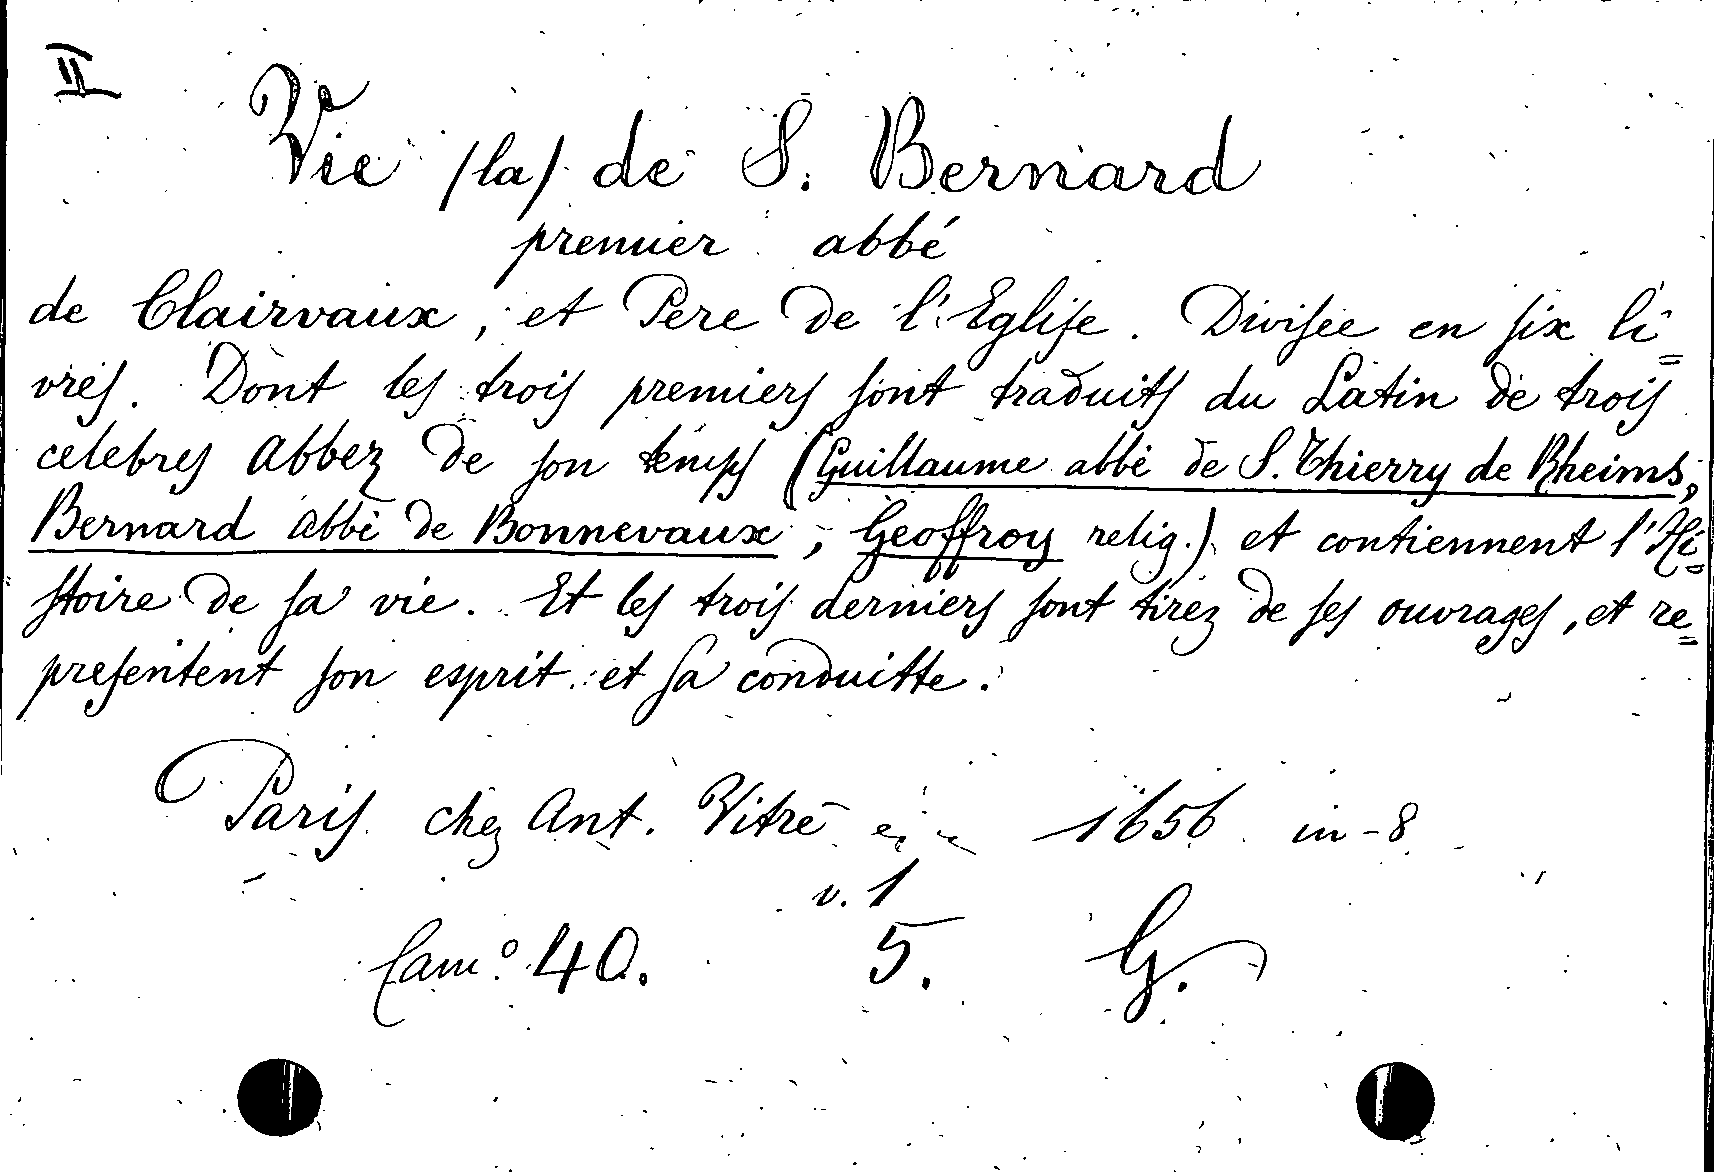 II
Vie (la) de S. Bernard
premier abbé
de Clairvaux, et Pere de l'Eglise. Divisée en six li=
vres. Dont les trois premiers sont traduits du Latin de trois
celebres Abbez de son temps (Guillaume abbé de S. Thierry de Rheims,
Bernard abbé de Bonnevaux, Geoffroy relig.) et contiennent l'Hi=
stoire de sa vie. Et les trois derniers sont tirez de ses ouvrages, et re=
presentent son esprit et sa conduitte.
Paris chez Ant. Vitré 1656 in-8
v. 1
Cam.º 40. 5. G.